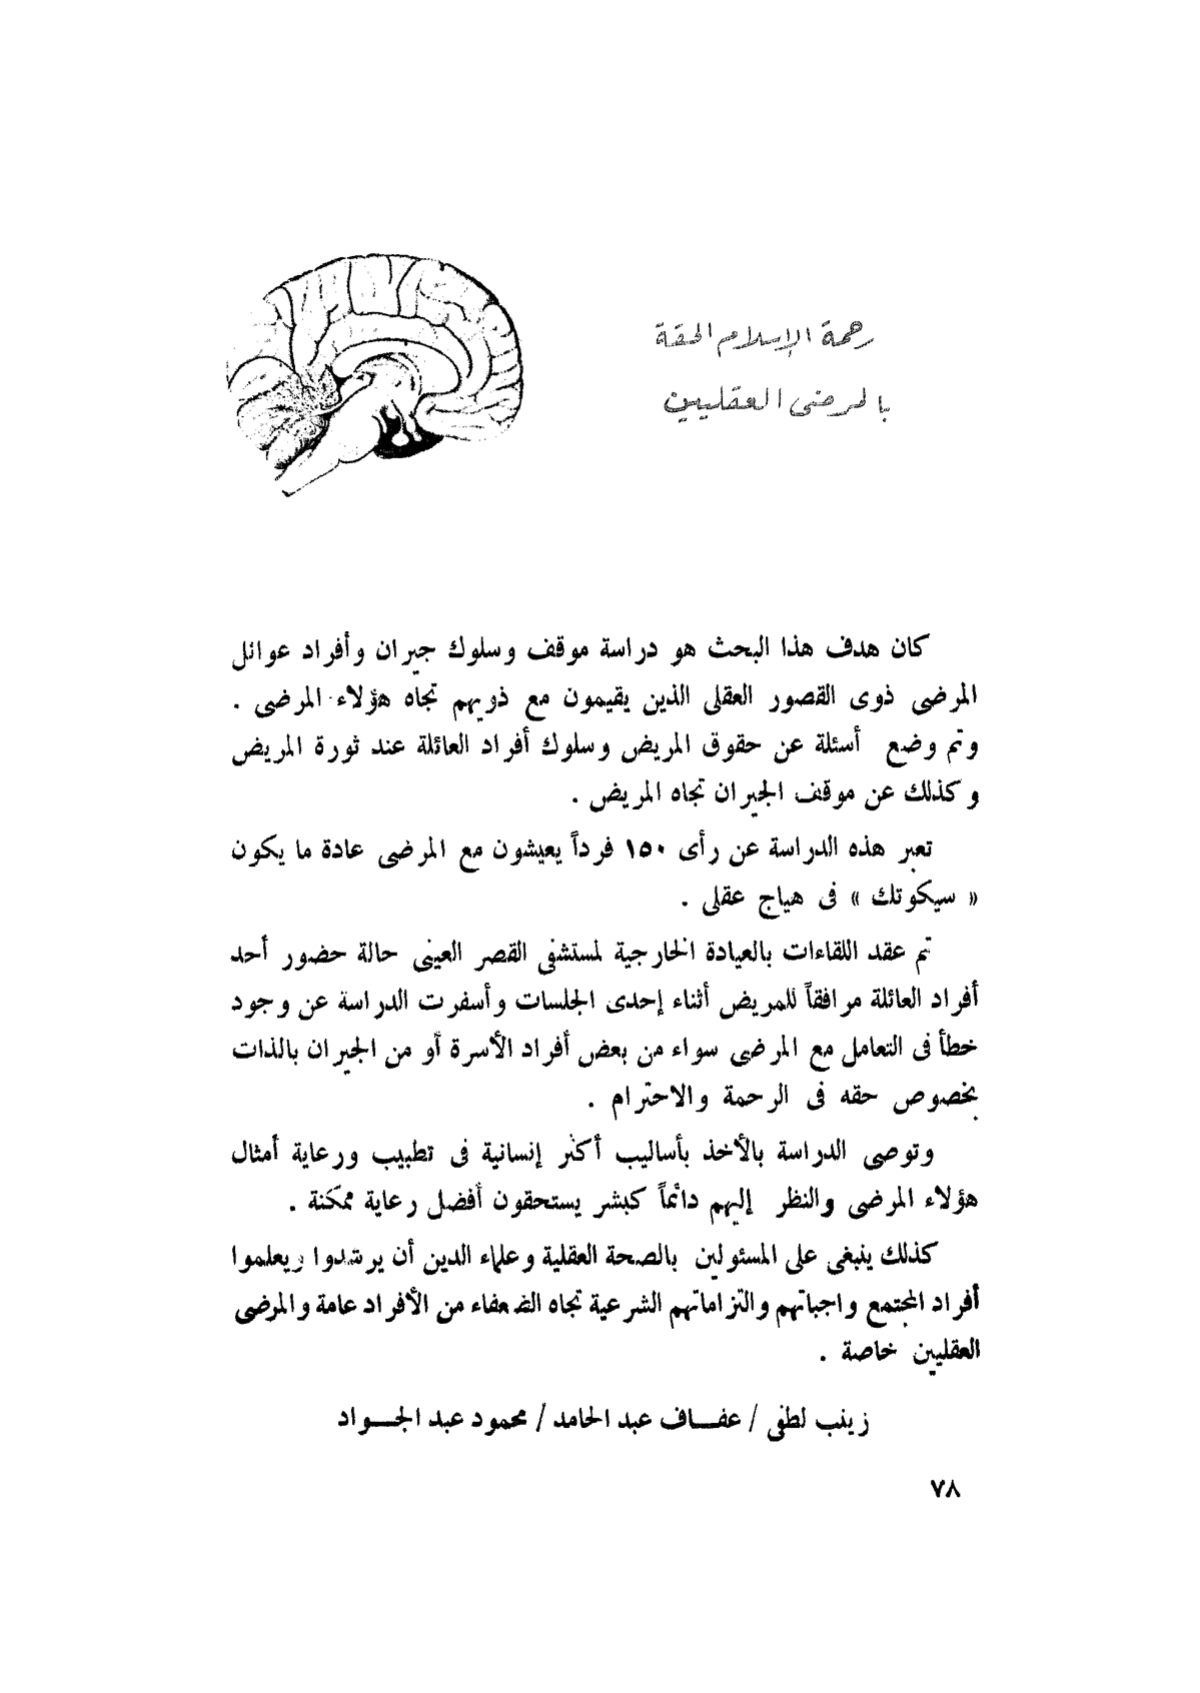 رحمة الإسلام الحقة
بالمرضى العقليين
كان هدف هذا البحث هو دراسة موقف وسلوك جيران وأفراد عوائل
المرضى ذوى القصور العقلى الذين يقيمون مع ذويهم تجاه هؤلاء المرضى .
وتم وضع أسئلة عن حقوق المريض وسلوك أفراد العائلة عند ثورة المريض
وكذلك عن موقف الجيران تجاه المريض .
تعبر هذه الدراسة عن رأى ١٥٠ فرداً يعيشون مع المرضى عادة ما يكون
« سيكوتك » فى هياج عقلى .
تم عقد اللقاءات بالعيادة الخارجية لمستشفى القصر العينى حالة حضور أحد
أفراد العائلة مرافقاً للمريض أثناء إحدى الجلسات وأسفرت الدراسة عن وجود
خطأ فى التعامل مع المرضى سواء من بعض أفراد الأسرة أو من الجيران بالذات
بخصوص حقه فى الرحمة والاحترام .
وتوصى الدراسة بالأخذ بأساليب أكثر إنسانية فى تطبيب ورعاية أمثال
هؤلاء المرضى والنظر إليهم دائماً كبشر يستحقون أفضل رعاية ممكنة .
كذلك ينبغى على المسئولين بالصحة العقلية وعلماء الدين أن يرشدوا ويعلموا
أفراد المجتمع واجباتهم والتزاماتهم الشرعية تجاه الضعفاء من الأفراد عامة والمرضى
العقليين خاصة .
زينب لطفى / عفــاف عبد الحامد / محمود عبد الجــواد
٧٨